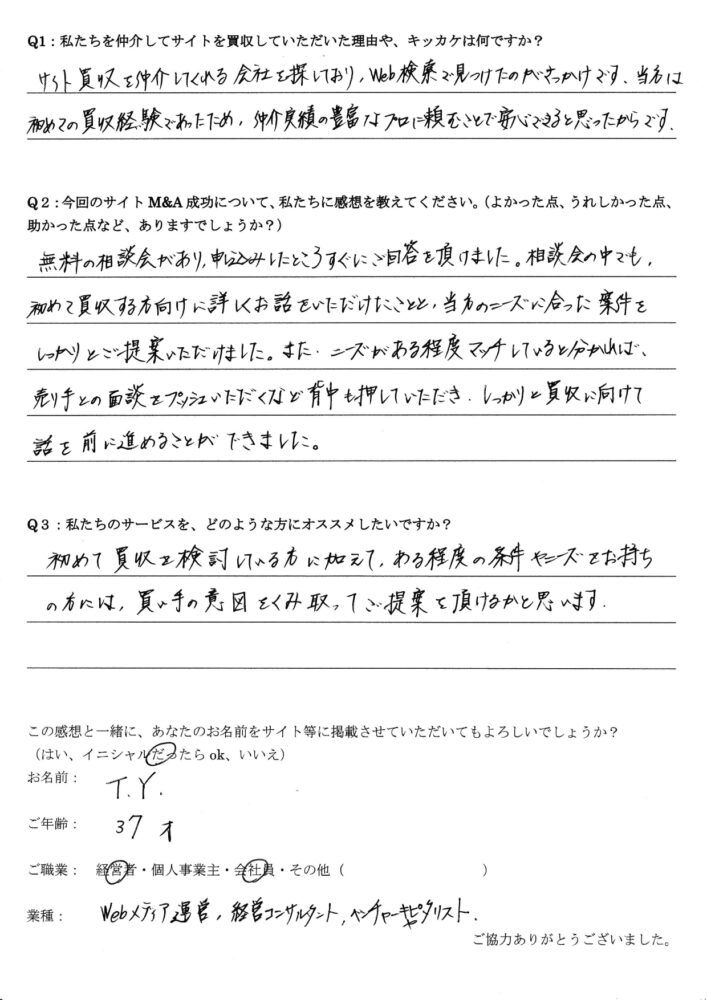 Q1：私たちを仲介してサイトを買収していただいた理由や、キッカケは何ですか？
サイト買収を仲介してくれる会社を探しており、Web検索で見つけたのがきっかけです。当方は
初めての買収経験であったため、仲介実績の豊富なプロに頼むことで安心できると思ったからです。
Q２：今回のサイトM&A成功について、私たちに感想を教えてください。（よかった点、うれしかった点、
助かった点など、ありますでしょうか？）
無料の相談会があり、申込みしたところすぐにご回答を頂けました。相談会の中でも、
初めて買収する方向けに詳しくお話をいただけたことと、当方のニーズに合った案件を
しっかりとご提案いただけました。また、ニーズがある程度マッチしていると分かれば、
売り手との面談をプッシュいただくなど背中も押していただき、しっかりと買収に向けて
話を前に進めることができました。
Q３：私たちのサービスを、どのような方にオススメしたいですか？
初めて買収を検討している方に加えて、ある程度の条件やニーズをお持ち
の方には、買い手の意図をくみ取ってご提案を頂けるかと思います。
この感想と一緒に、あなたのお名前をサイト等に掲載させていただいてもよろしいでしょうか？
（はい、イニシャルだったらok、いいえ）
お名前： T.Y.
ご年齢： 37才
ご職業： 経営者・個人事業主・会社員・その他（ ）
業種： Webメディア運営、経営コンサルタント、ベンチャーキャピタリスト.
ご協力ありがとうございました。